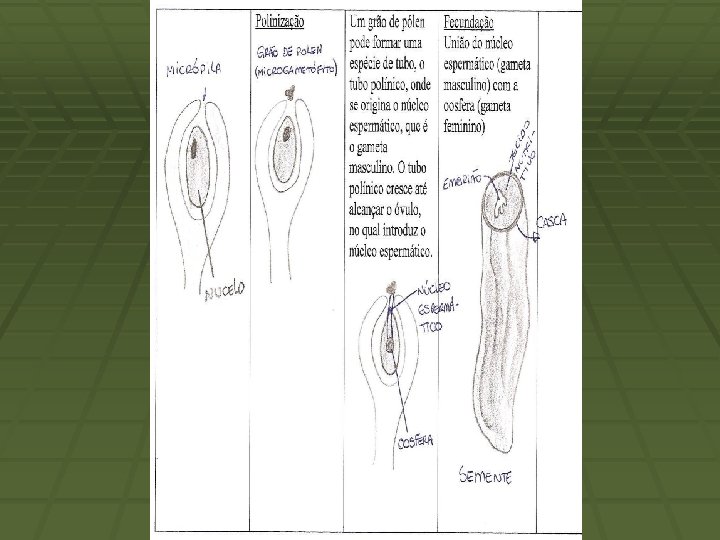 MICRÓPILA
NUCELO
Polinização
GRÃO DE POLEN
(MICROGAMETÓFITO)
Um grão de pólen
pode formar uma
espécie de tubo, o
tubo polínico, onde
se origina o núcleo
espermático, que é
o gameta
masculino. O tubo
polínico cresce até
alcançar o óvulo,
no qual introduz o
núcleo espermático.
NÚCLEO
ESPERMÁ-
TICO
OOSFERA
Fecundação
União do núcleo
espermático (gameta
masculino) com a
oosfera (gameta
feminino)
TECIDO
NUTRI-
TIVO
EMBRIÃO
CASCA
SEMENTE